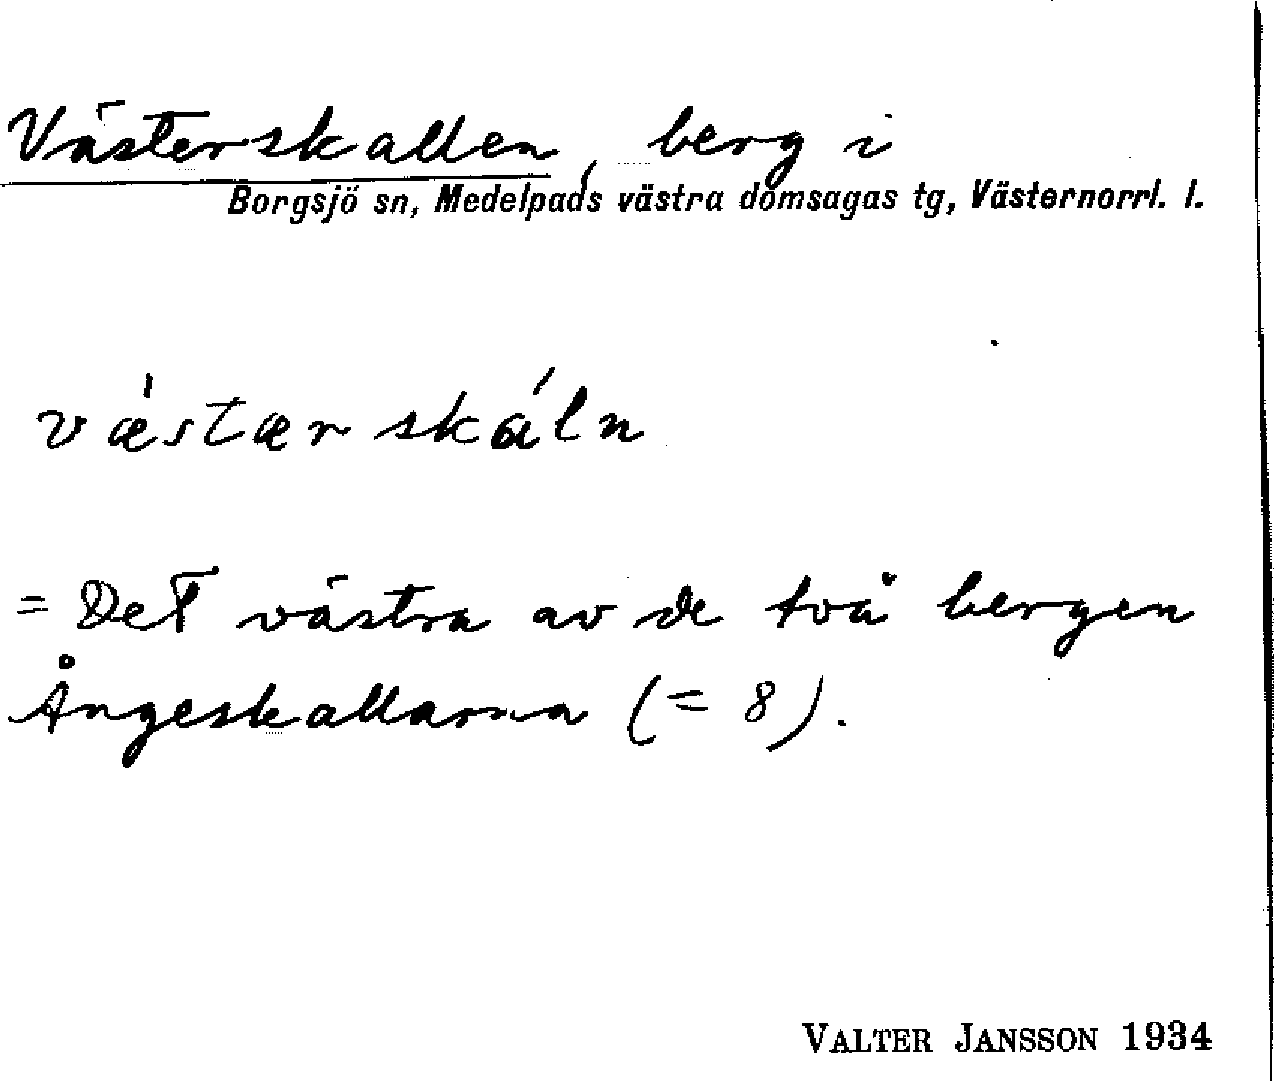 Västerskallen, berg i
Borgsjö sn, Medelpads västra domsagas tg, Västernorrl. l.
vǽstær skáln
= Det västra av de två bergen
Ångeskallarna (= 8).
VALTER JANSSON 1934